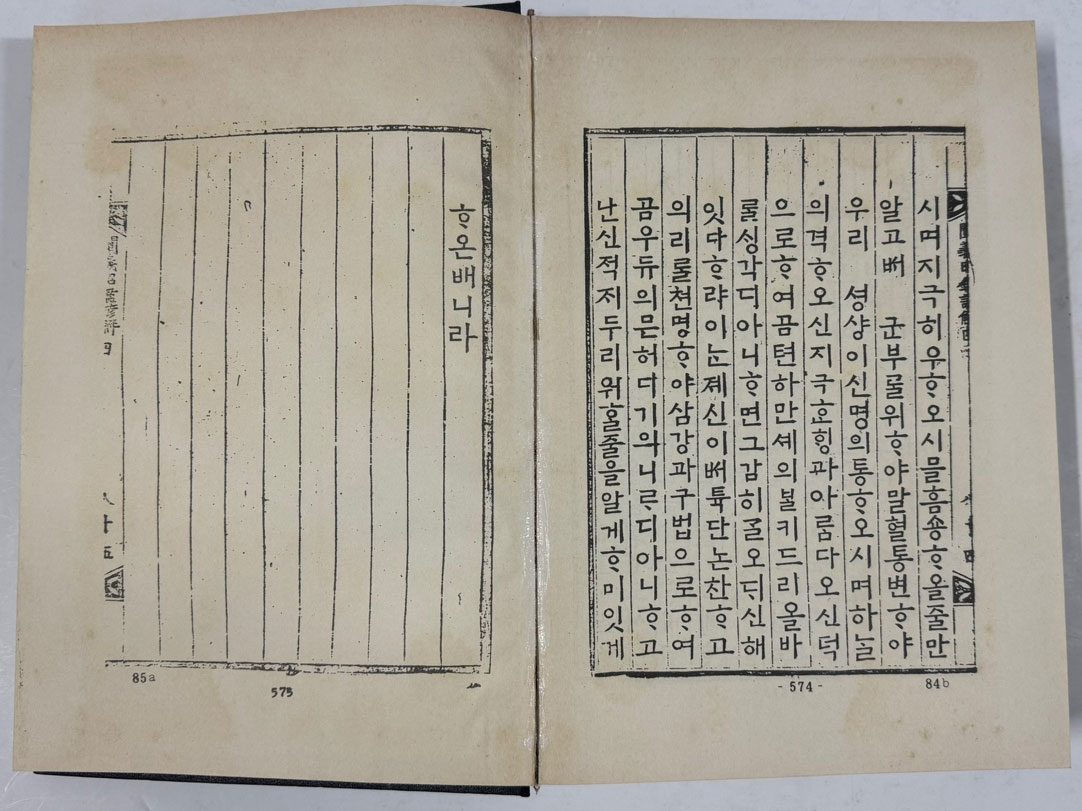 시며지극히우ᄒᆞ오시믈흠숑ᄒᆞ올줄만
알고ᄡᅥ 군부ᄅᆞᆯ위ᄒᆞ야말혈통변ᄒᆞ야
우리 셩샹이신명의통ᄒᆞ오시며하ᄂᆞᆯ
의격ᄒᆞ오신지극효ᄒᆡᆼ과아룸다오신덕
으로ᄒᆞ여곰텬하만셰의ᄇᆞᆯ키드리올바
ᄅᆞᆯᄉᆡᆼ각디아니ᄒᆞ면그감히ᄀᆞᆯ오ᄃᆡ신해
잇다ᄒᆞ랴이ᄂᆞᆫ졔신이ᄡᅥ튝단논찬ᄒᆞ고
의리ᄅᆞᆯ쳔명ᄒᆞ야삼강과구법으로ᄒᆞ여
곰우듀의믄허디기의니ᄅᆞ디아니ᄒᆞ고
난신적지두리워ᄒᆞᆯ줄을알게ᄒᆞ미잇게
84b
- 574 -
ᄒᆞ온배니라
85a
575